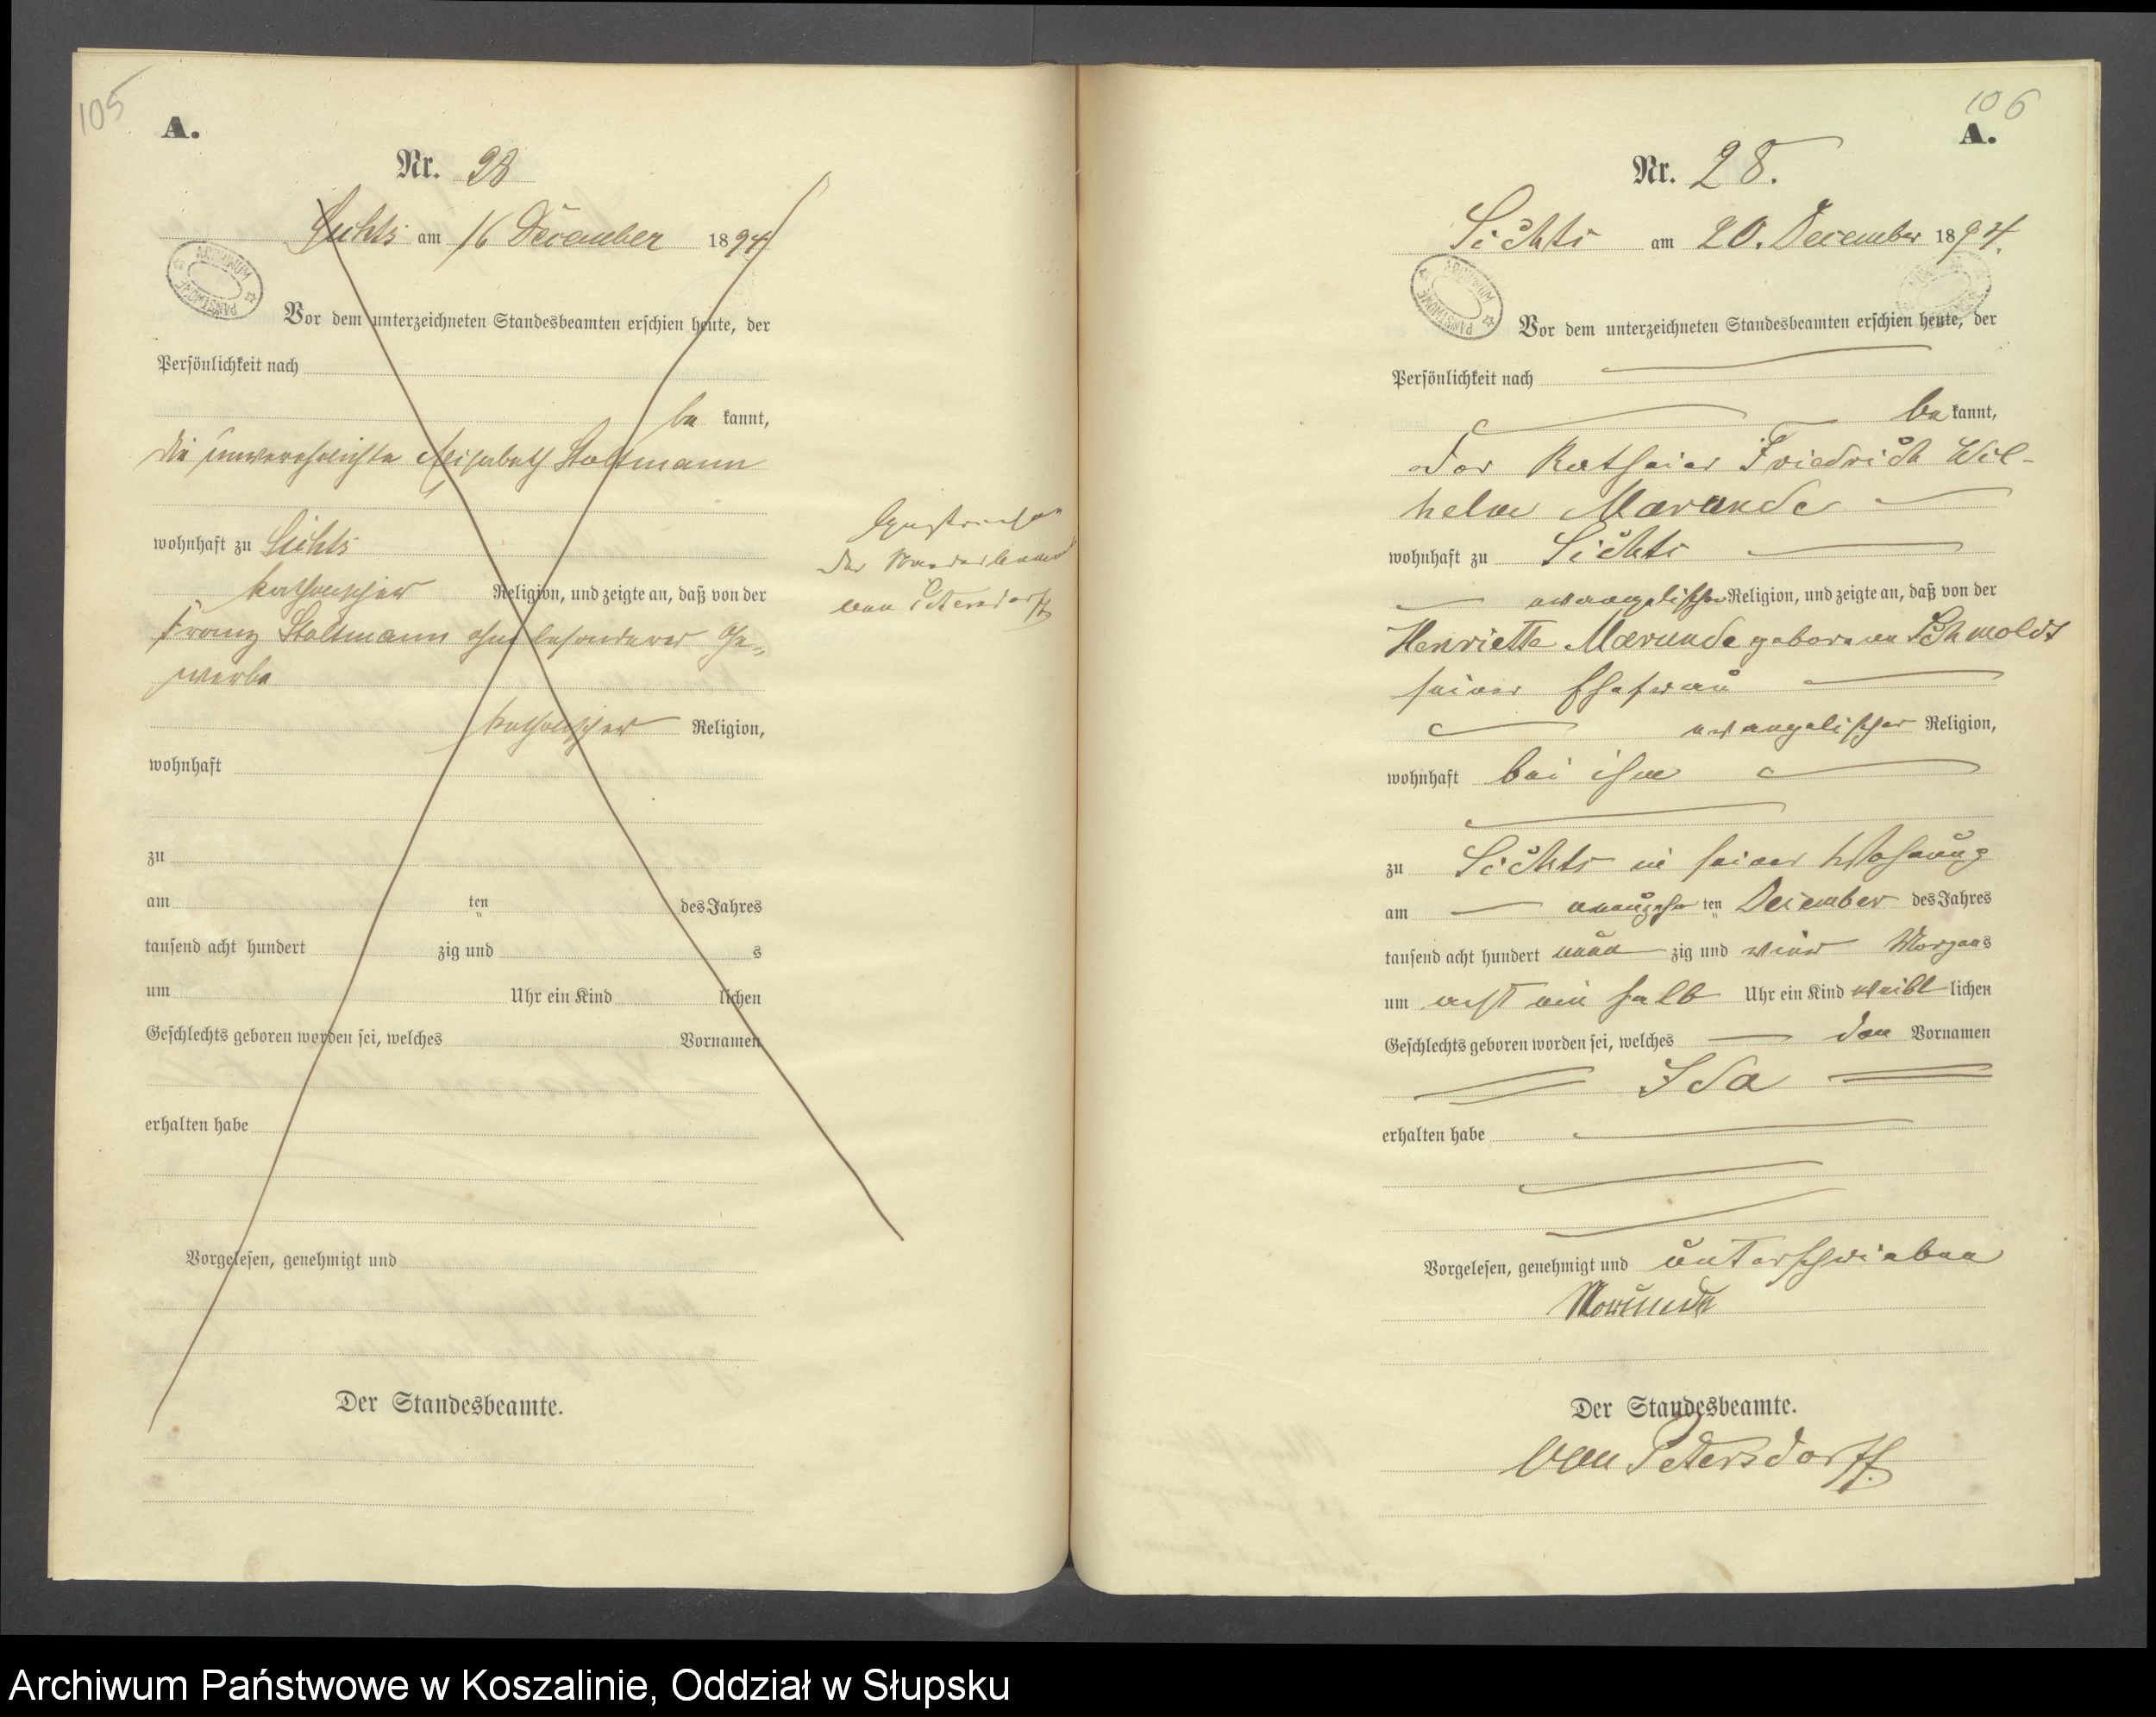 105
A.
Nr. 28
Lichts am 16 December 1894
ARCHIWUM PAŃSTWOWE
Vor dem unterzeichneten Standesbeamten erschien heute, der
Persönlichkeit nach
be kannt,
die unverehelichte Elisabeth Stoltmann
wohnhaft zu
katholischer Religion, und zeigte an, daß von der
Franz Stoltmann ohne besonderes Ge-
werbe
katholischer Religion,
wohnhaft
zu
am ten des Jahres
tausend acht hundert zig und s
um Uhr ein Kind lichen
Geschlechts geboren worden sei, welches Vornamen
erhalten habe
Vorgelesen, genehmigt und
Der Standesbeamte.
Gestrichen
Der Standesbeamte
von Petersdorff
106
A.
Nr. 28.
am 20. December 1894.
ARCHIWUM PAŃSTWOWE
Vor dem unterzeichneten Standesbeamten erschien heute, der
Persönlichkeit nach
be kannt,
der Friedrich Wil-
helm Marunde
wohnhaft zu
evangelischer Religion, und zeigte an, daß von der
Henriette Marunde geborenen Schmoldt
seiner Ehefrau
evangelischer Religion,
wohnhaft bei ihm
zu in seiner Wohnung
am neunzehn ten December des Jahres
tausend acht hundert neun zig und vier Morgens
um acht ein halb Uhr ein Kind weib lichen
Geschlechts geboren worden sei, welches den Vornamen
Ida
erhalten habe
Vorgelesen, genehmigt und unterschrieben
Marunde
Der Standesbeamte.
von Petersdorff.
Archiwum Państwowe w Koszalinie, Oddział w Słupsku